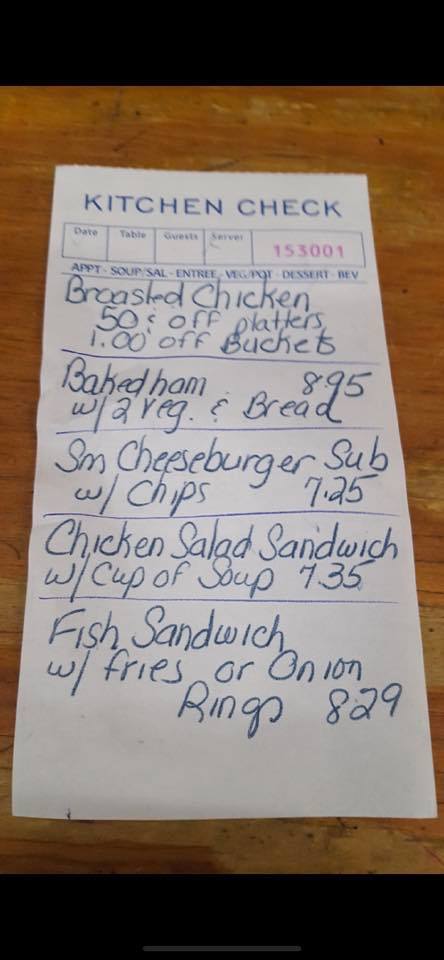 KITCHEN CHECK
Date Table Guests Server 153001
APPT - SOUP/SAL - ENTREE - VEG/POT - DESSERT - BEV
Broasted Chicken
50¢ off platters
1.00 off Buckets
Baked ham 8.95
w/ 2 veg. & Bread
Sm Cheeseburger Sub
w/ Chips 7.25
Chicken Salad Sandwich
w/ Cup of Soup 7.35
Fish Sandwich
w/ fries or Onion
Rings 8.29